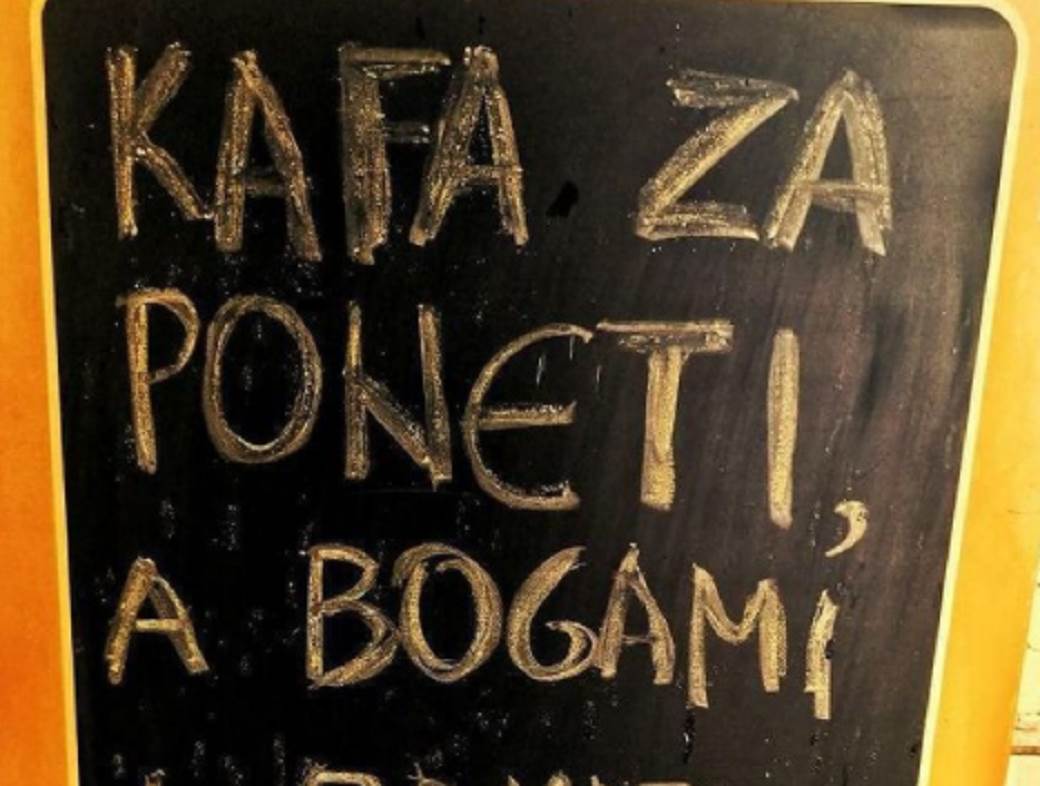 KAFA ZA
PONETI,
A BOGAMI